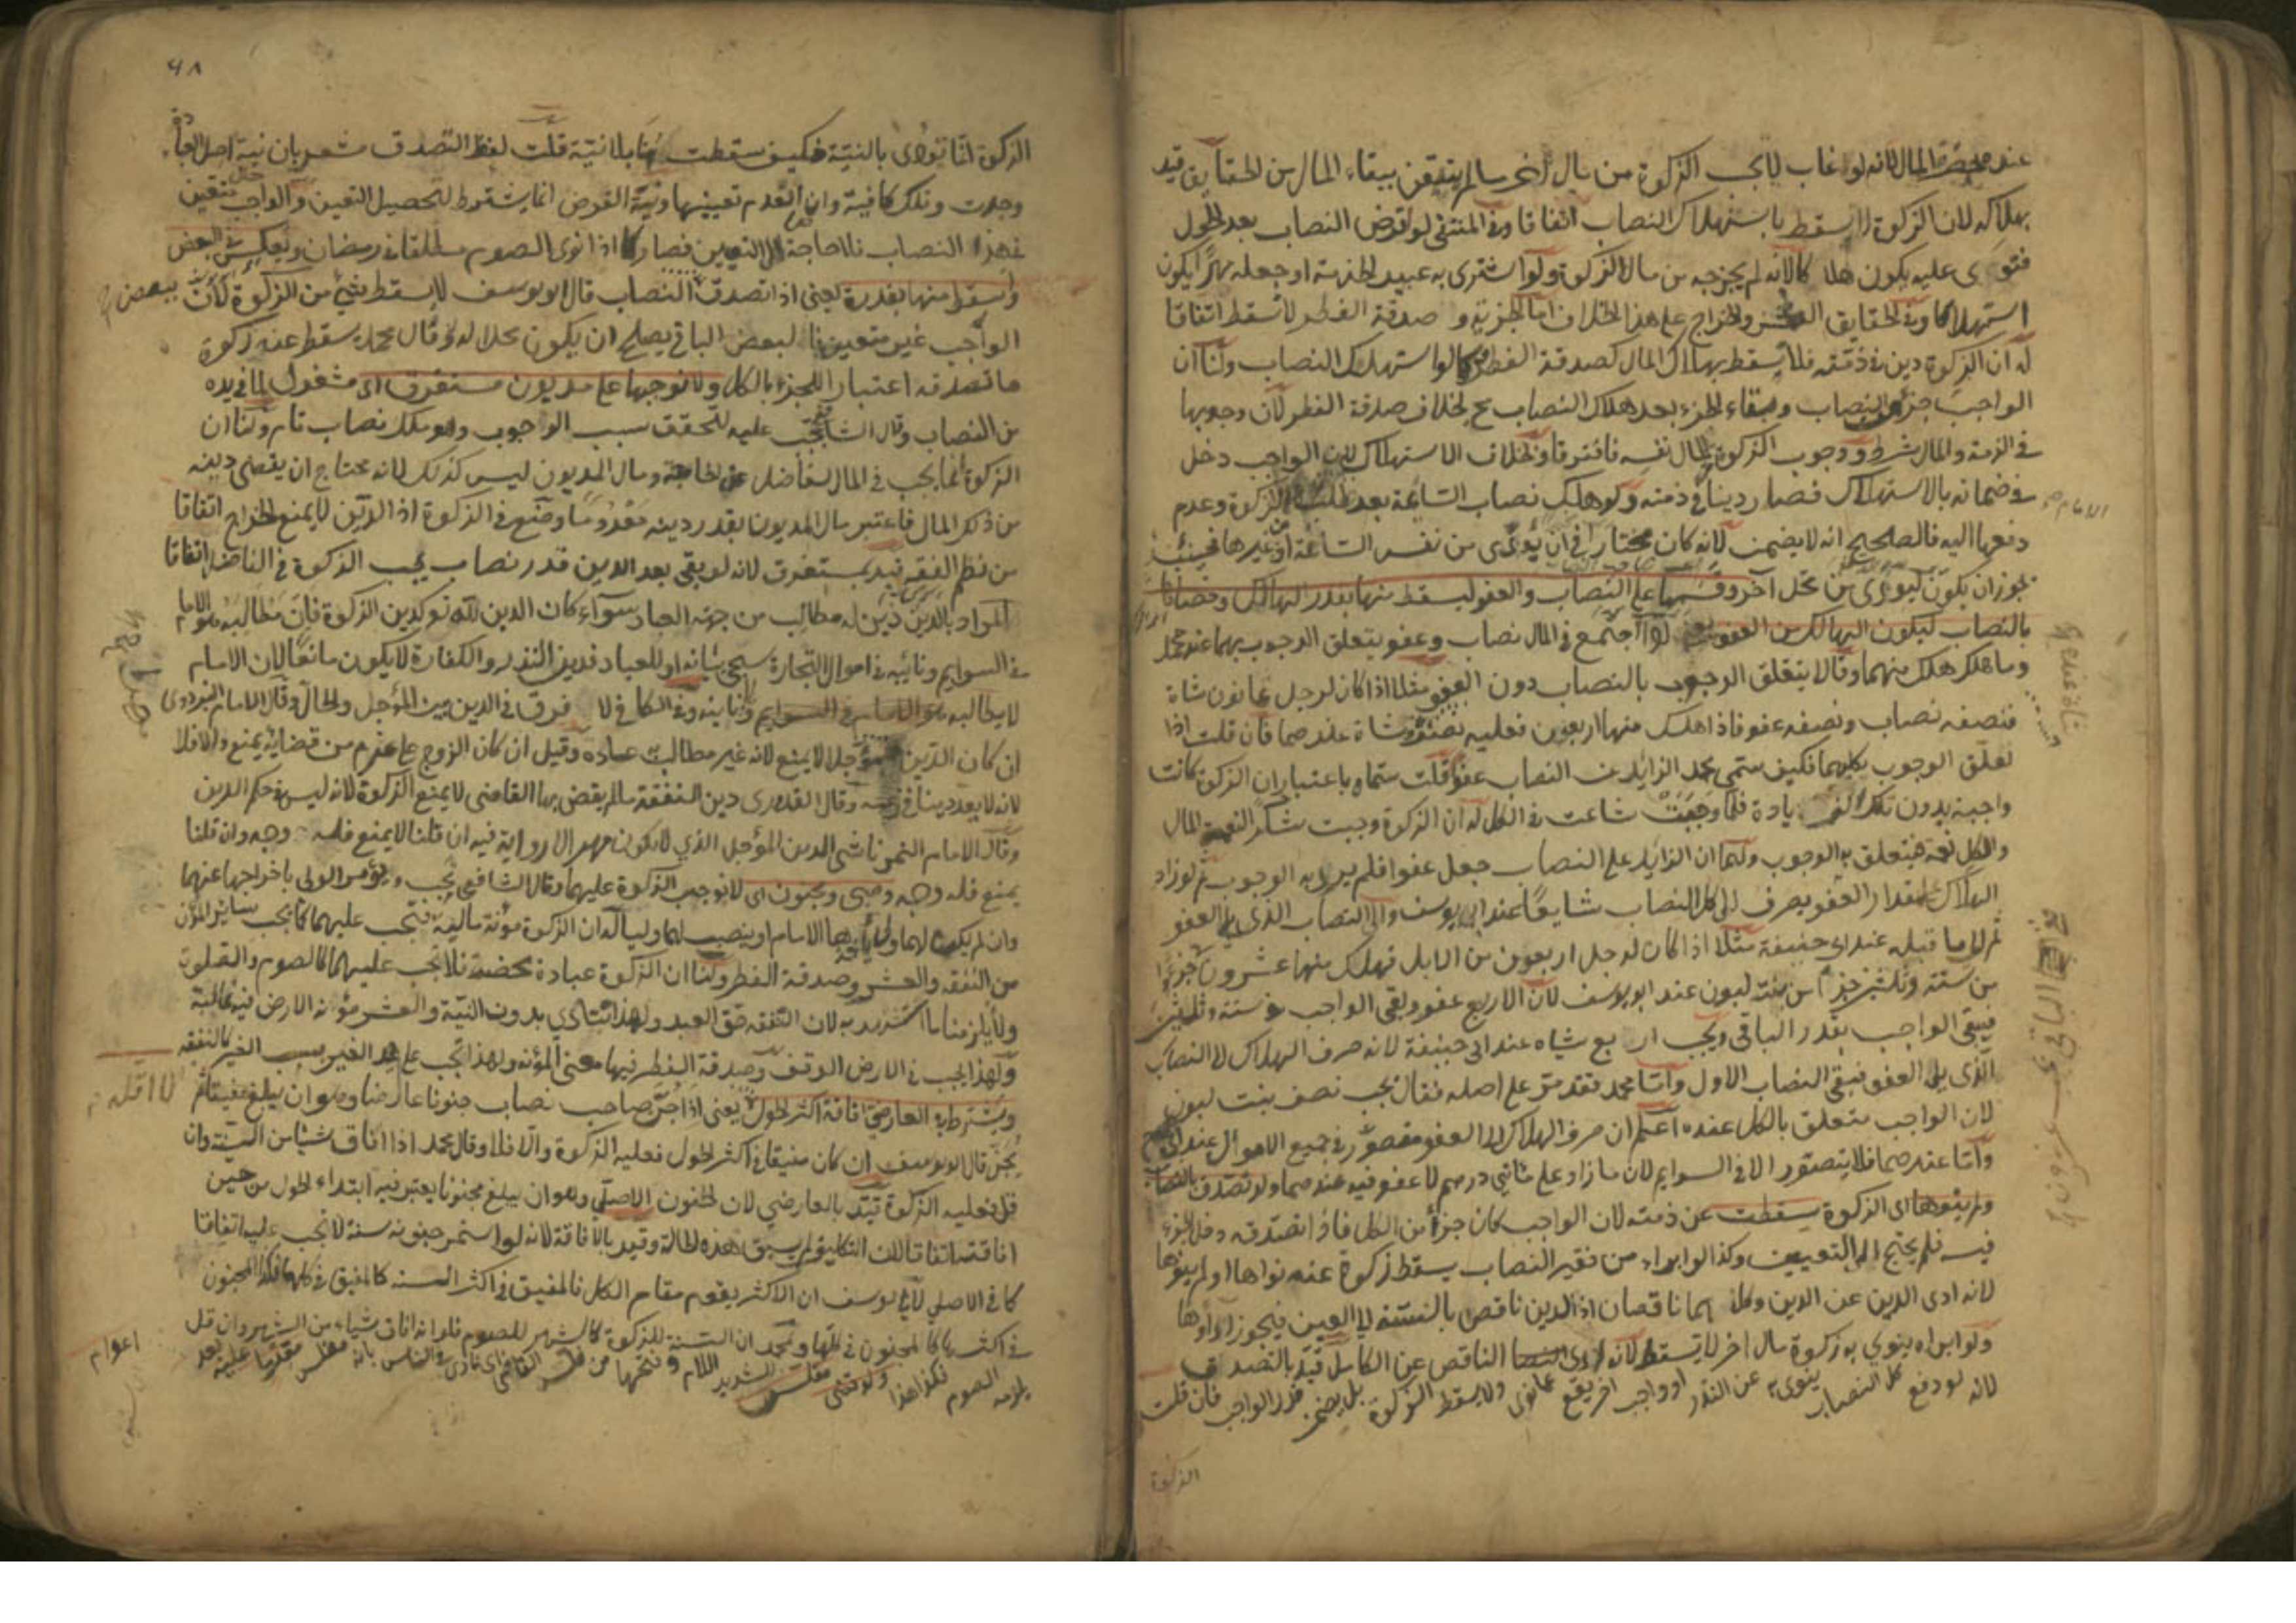 عند محضة المال لانه لو غاب لا تجب الزكوة من مال اخر ما لم يتيقن ببقاء المال من الحقايق قيد
بهلاكه لان الزكوة لا تسقط باستهلاك النصاب اتفاقا وفي المنتقى لو اقرض النصاب بعد الحول
فتوى عليه يكون هلاكا لانه لم يخرجه من مال الزكوة ولو اشترى به عبيد الخدمة او جعله مهرا يكون
استهلاكا وفي الحقايق العشر والخراج على هذا الخلاف اما الجزية و صدقة الفطر لا تسقط اتفاقا
له ان الزكوة دين في ذمته فلا يسقط بهلاك المال كصدقة الفطر وكما لو استهلك النصاب ولنا ان
الواجب جزء من النصاب وبقاء الجزء بعد هلاك النصاب مح بخلاف صدقة الفطر لان وجوبها
في الذمة والمال شرط ووجوب الزكوة في المال نفسه فافترقا وبخلاف الاستهلاك لان الواجب دخل
في ضمانه بالاستهلاك فصار دينا في ذمته ولو هلك نصاب السائمة بعد طلب الزكوة وعدم
الامام صح
دفعها اليه فالصحيح انه لا يضمن لانه كان مختارا في ان يؤدى من نفس السائمة او من غيرها فحينئذ
يجوز ان يكون ليؤدى من محل آخر وقسمها على النصاب والعفو ليسقط منها بقدر الهالك وخصاها
بالنصاب ليكون الهالك من العفو يعني لو اجتمع في المال نصاب وعفو يتعلق الوجوب بهما عند محمد
وما هلك هلك منهما وقالا يتعلق الوجوب بالنصاب دون العفو مثلا اذا كان لرجل ثمانون شاة
فنصفه نصاب ونصفه عفو فاذا هلك منها اربعون فعليه نصف شاة عنده وشاة عندهما فان قلت اذا
تعلق الوجوب بكليهما فكيف سمى محمد الزايد عن النصاب عفوا قلت سماه باعتبار ان الزكوة كانت
واجبة بدون تلك الزيادة فلما وجبت شاعت في الكل له ان الزكوة وجبت شكر النعمة المال
والكل نعمة فيتعلق به الوجوب ولهما ان الزايد على النصاب جعل عفوا فلم يرد به الوجوب ثم لو زاد
الهلاك على مقدار العفو يصرف الى كل النصاب شايعا عند ابي يوسف والى النصاب الذي يلي العفو
ثم الى ما قبله عند ابي حنيفة مثلا اذا كان لرجل اربعون من الابل فهلك منها عشرون تجب عشرون جزءا
من ستة وثلثين جزءا من بنت لبون عند ابو يوسف لان الاربع عفو وبقى الواجب في ستة وثلثين
فيبقى الواجب بقدر الباقي ويجب اربع شياه عند ابي حنيفة لانه صرف الهلاك الى النصاب
الذي يلي العفو فبقى النصاب الاول واما محمد فقد مر على اصله فقال يجب نصف بنت لبون
لان الواجب متعلق بالكل عنده اعلم ان صرف الهلاك الى العفو مقصور في جميع الاموال عند ابي ح
واما عندهما فلا يتصور الا في السوايم لان ما زاد على مائتي درهم لا عفو فيه عندهما ولو تصدق بالنصاب
ولم ينوها اى الزكوة سقطت عن ذمته لان الواجب كان جزأ من الكل فاذا تصدقه دخل الجزء
فيه فلم يحتج الى التعيين وكذا لو ابراء من فقير النصاب يسقط زكوة عنه نواها او لم ينوها
لانه ادى الدين عن الدين وكلاهما ناقصان اذ الدين ناقص بالنسبة الى العين فيجوز اداؤها
ولو ابراه ينوي به زكوة مال اخر لا يسقط لانه ادى الناقص عن الكامل قيد بالتصدق
لانه لو دفع كل النصاب ينوى به عن النذر او واجب اخر يقع عما نوى ولا يسقط الزكوة بل يضمن قدر الواجب فان قلت
الزكوة
٤٨
الزكوة انما تؤدى بالنية فكيف سقطت ههنا بلا نية قلت لفظ التصدق مشعر بان نية اصل العبادة
وجدت وتلك كافية وان انعدم تعيينها ونية الفرض انما يشترط لتحصيل التعين والواجب متعين
في هذا النصاب فلا حاجة الى التعيين فصار كما اذا نوى الصوم مطلقا في رمضان وبعكس في البعض
واسقط منها بقدره يعني اذا تصدق ببعض النصاب قال ابو يوسف لا يسقط شئ من الزكوة لان
ببعض صح
الواجب غير متعين بالبعض الباقي يصلح ان يكون محلا له وقال محمد يسقط عنه زكوة
ما تصدقه اعتبارا للجزء بالكل ولا نوجبها على مديون مستغرق اى مشغول لما في يده
من النصاب وقال الشافعي تجب عليه لتحقق سبب الوجوب وهو ملك نصاب تام ولنا ان
الزكوة انما يجب في المال الفاضل عن الحاجة ومال المديون ليس كذلك لانه محتاج ان يقضى دينه
من ذلك المال فاعتبر مال المديون بقدر دينه معدوما وضع في الزكوة اذ الدين لا يمنع الخراج اتفاقا
من نظم الفقه قيد بمستغرق لانه لو بقى بعد الدين قدر نصاب يجب الزكوة في الفاضل اتفاقا
المراد بالدين دين له مطالب من جهة العباد سواء كان الدين لله تعالى كدين الزكوة فان مطالبه هو الامام
في السوايم ونائبه في اموال التجارة او للعباد فدين النذر والكفارة لا يكون مانعا لان الامام
لا يطالبه وفي الكافي لا فرق في الدين بين المؤجل والحال وقال الامام البزدوى
ان كان الدين مؤجلا لا يمنع لانه غير مطالب عادة وقيل ان كان الزوج على عزم من قضائه يمنع والا فلا
لانه لا يعد دينا في زعمه وقال القدورى دين النفقة ما لم يقض بها القاضى لا يمنع الزكوة لانه ليس في حكم الدين
وقال الامام التمرتاشي الدين المؤجل الذي لا يكون مهرا لا رواية فيه ان قلنا لا يمنع فله وجه وان قلنا
يمنع فله وجه وصبى ومجنون اى لا نوجب الزكوة عليهما وقال الشافعي تجب ويؤمر الولى باخراجها عنهما
وان لم يكن لهما ولى الامام او ينصب لهما وليا له ان الزكوة مؤنة مالية فتجب عليهما كما تجب ساير المؤن
من النفقة والعشر وصدقة الفطر ولنا ان الزكوة عبادة محضة فلا تجب عليهما كالصوم والصلوة
ولا يلزمنا ما استشهد به لان النفقة حق العبد ولهذا تتادى بدون النية والعشر مؤنة الارض فيه غالبة
ولهذا يجب في الارض الوقف وصدقة الفطر فيها معنى المؤنة ولهذا تجب على الغير بسبب الغير كالنفقة
ويشترط في العارضي افاقة اكثر الحول يعني اذا جن صاحب نصاب جنونا عارضا وهو ان يبلغ مفيقا ثم
لا اقله
يجن قال ابو يوسف ان كان مفيقا في اكثر الحول فعليه الزكوة والا فلا وقال محمد اذا افاق شيئا من السنة وان
قل فعليه الزكوة قيد بالعارضي لان الجنون الاصلي وهو ان يبلغ مجنونا يعتبر فيه ابتداء الحول من حين
افاقته اتفاقا لان التكليف لم يسبق هذه الحالة وقيد بالافاقة لانه لو استمر جنونه سنة لا تجب عليه اتفاقا
كما في الاصلي لابي يوسف ان الاكثر يقوم مقام الكل فالمفيق في اكثر السنة كالمفيق في كلها فكذا المجنون
في اكثرها كالمجنون في كلها ولمحمد ان السنة للزكوة كالشهر للصوم فلو انه افاق شياء من الشهر وان قل
يلزمه الصوم فكذا هذا ولو قضى مفلس بتشديد اللام وفتحها من فلسه القاضى اى نادى في الناس بانه مفلس مقر ما عليه بعد
اعوام